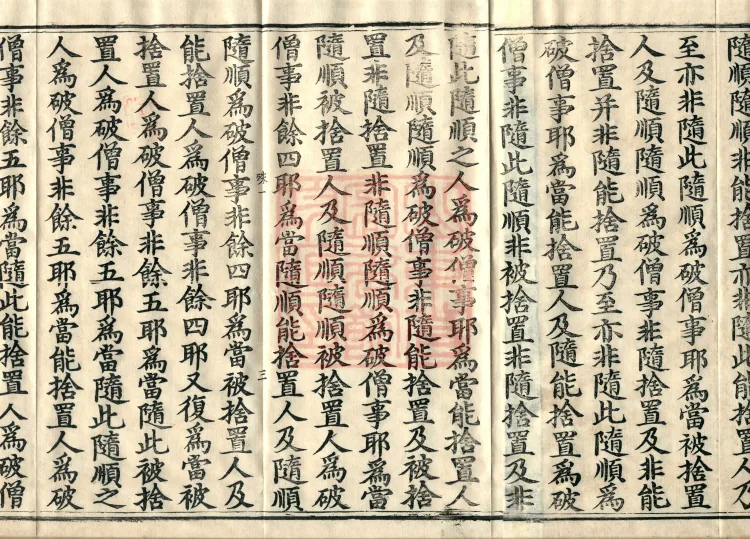 隨順能捨置亦非隨順能捨置人及
至亦非隨此隨順爲破僧事耶爲當被捨置
人及隨順隨順爲破僧事非隨能捨置及非能
捨置并非隨能捨置乃至亦非隨此隨順爲
破僧事耶爲當能捨置人及隨能捨置爲破
僧事非隨此隨順非被捨置非隨捨置及非
隨此隨順之人爲破僧事耶爲當能捨置人
及隨順隨順爲破僧事非隨能捨置及被捨
置非隨捨置非隨順隨順爲破僧事耶爲當
隨順被捨置人及隨順隨順被捨置人爲破
僧事非餘四耶爲當隨順能捨置人及隨順
隨順爲破僧事非餘四耶爲當被捨置人及
殊一
三
能捨置人爲破僧事非餘四耶又復爲當被
捨置人爲破僧事非餘五耶爲當隨此被捨
置人爲破僧事非餘五耶爲當隨此隨順之
人爲破僧事非餘五耶爲當能捨置人爲破
僧事非餘五耶爲當隨此能捨置人爲破僧